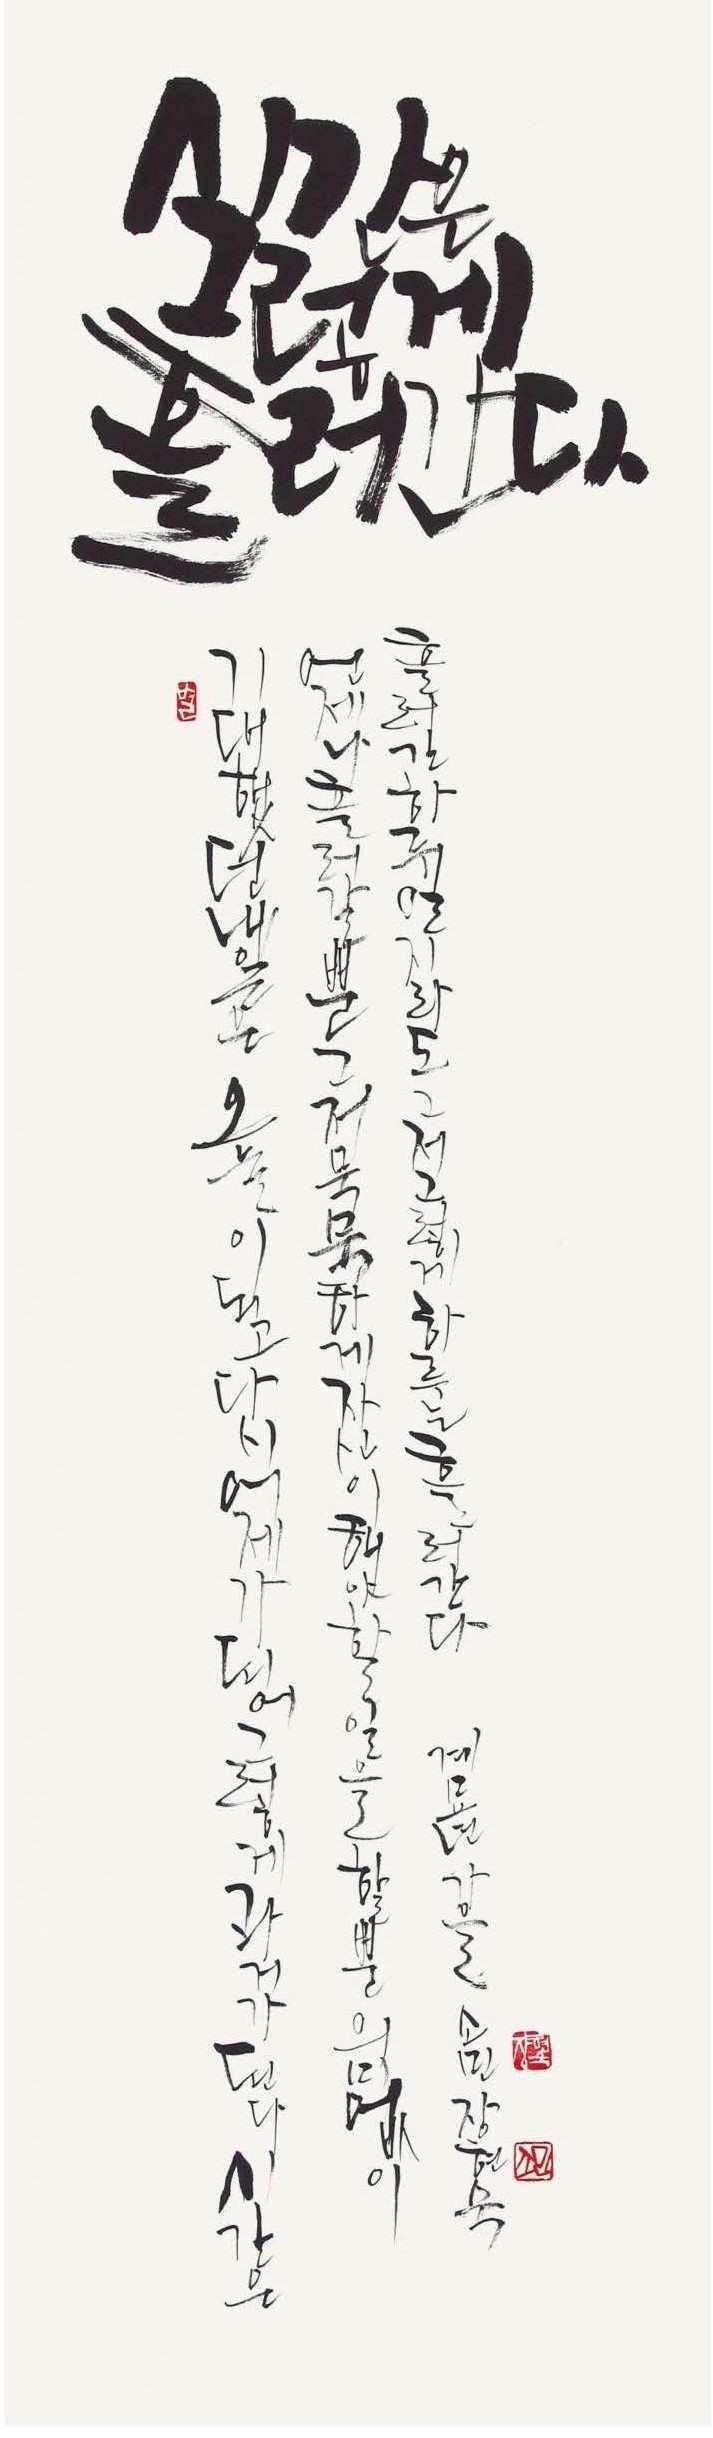 시간은
그렇게
흘러간다
기대했던 내일은 오늘이 되고 다시 어제가 되어 그렇게 과거가 된다 시간은
언제나 흘러갈뿐 그저 묵묵하게 자신이 해야할 일을 할뿐 의미없이
흘러간 하루일지라도 그저 그렇게 하루는 흘러간다
계묘년 가을 장현묵